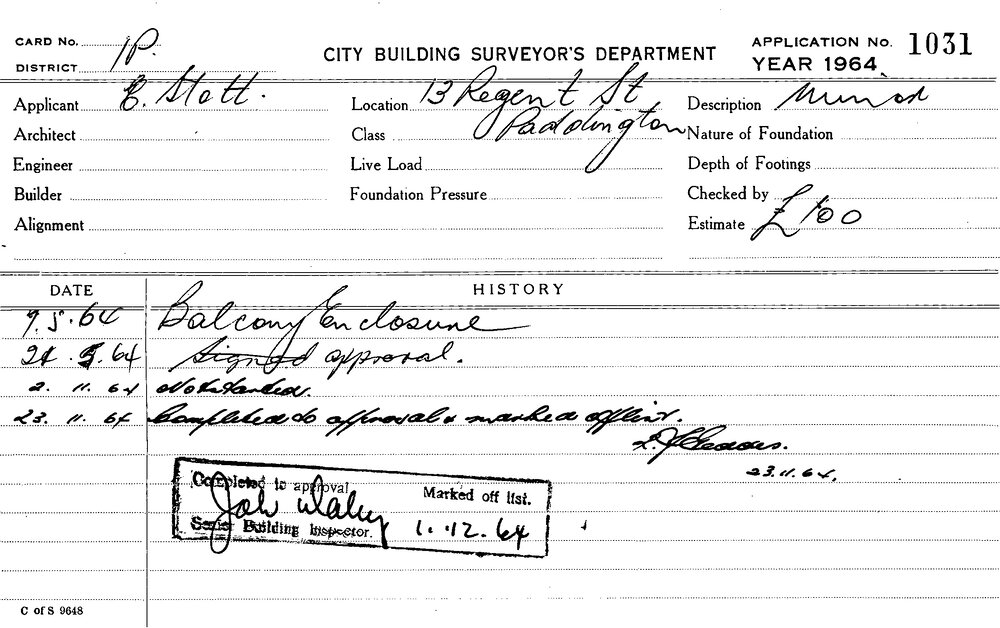 CARD No. 1P.
DISTRICT
CITY BUILDING SURVEYOR'S DEPARTMENT
APPLICATION No. 1031
YEAR 1964
Applicant E. Stott.
Location 13 Regent St Paddington
Description Minor
Architect
Class
Nature of Foundation
Engineer
Live Load
Depth of Footings
Builder
Foundation Pressure
Checked by
Alignment
Estimate £100
DATE HISTORY
9.5.64 Balcony Enclosure
.64 Signed approval.
2. 11. 64 Not started.
23. 11. 64 Completed to approval & marked off list.
23.11.64.
Completed to approval
Marked off list.
Senior Building Inspector. 1.12.64
C of S 9648